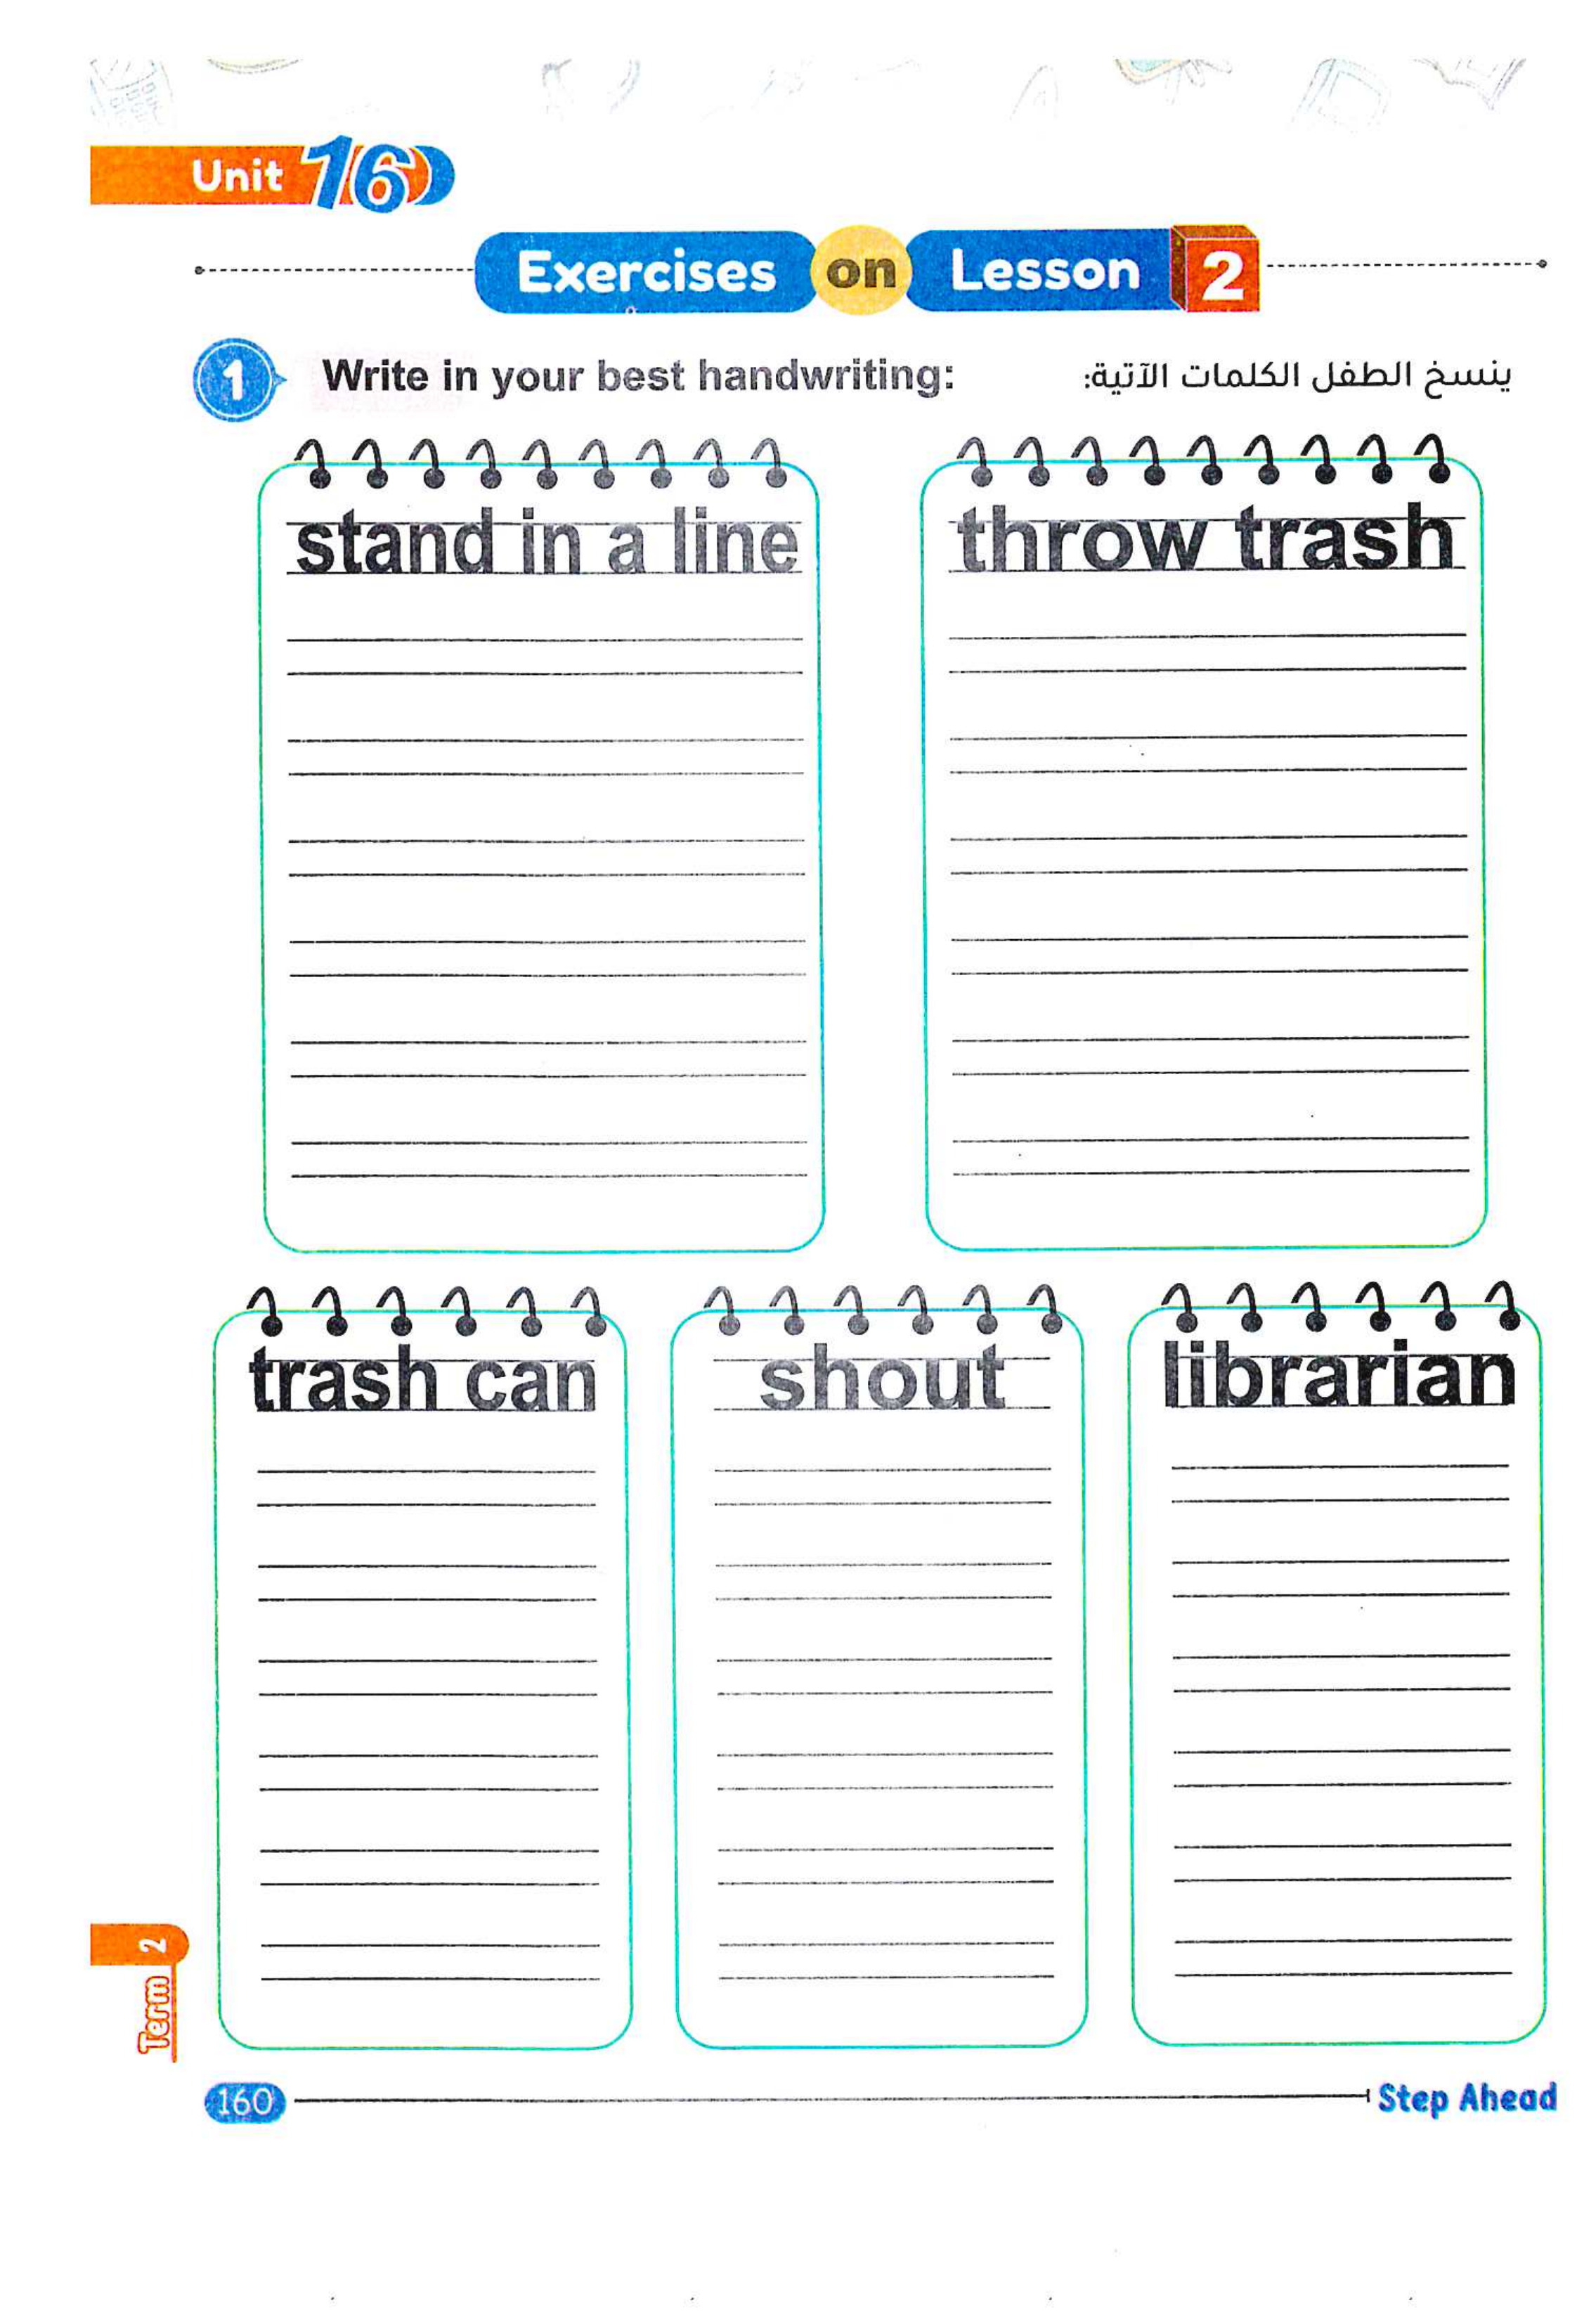 Unit 16
Exercises on Lesson 2
1 Write in your best handwriting: ينسخ الطفل الكلمات الآتية:
stand in a line
throw trash
trash can
shout
librarian
Term 2
160
Step Ahead